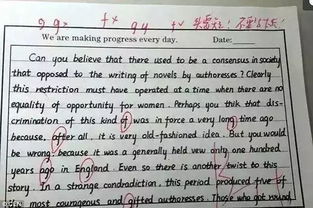 g g x f x g y f v
We are making progress every day. Date:
Can you believe that there used to be a consensus in society
that opposed to the writing of novels by authoresses? Clearly
this restriction must have operated at a time when there are no
equality of opportunity for women. Perhaps you thik that dis-
crimination of this kind of was in force a very long time ago
because, after all, it is very old-fashioned idea. But you would
be wrong, because it was a generally held vew only one hundred
years ago in England. Even so there is another twist to this
story. In a strange condradiction, this period produced five of
most courageous and gifted authoresses. Those who got round